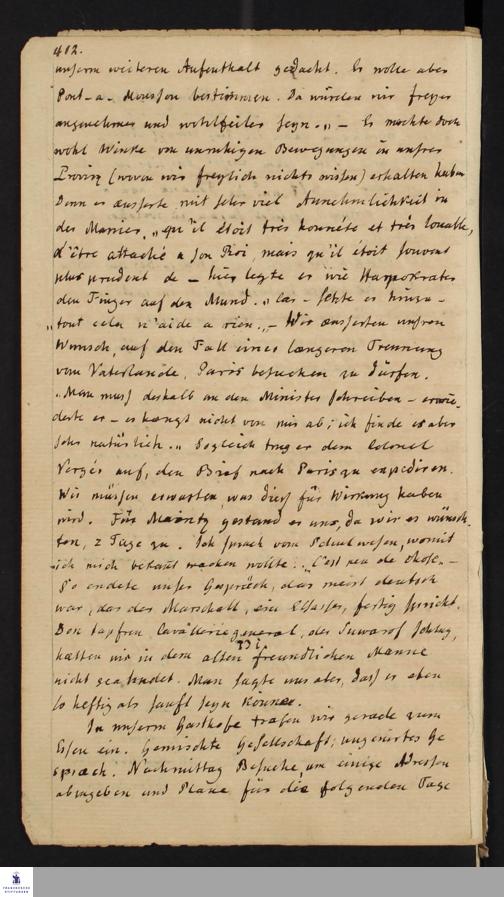 412.
unserm weiteren Aufenthalt gedacht. Er wolle aber
Pont-a-Mousson bestimmen. Da würden wir freyer
angenehmer und wohlfeiler seyn.„ – Er mochte doch
wohl Winke von unruhigen Bewegungen in unsrer
Provinz (wovon wir freylich nichts wissen) erhalten haben
Denn er äusserte mit sehr viel Annehmlichkeit in
der Manier, „qu'il étoit très honnête et très louable,
d'être attaché a son Roi, mais qu'il étoit souvent
plus prudent de – hier legte er wie Harpokrates
den Finger auf den Mund. „car – setzte er hinzu –
„tout cela n'aide a rien.„ – Wir äusserten unsren
Wunsch, auf den Fall einer längeren Trennung
vom Vaterlande, Paris besuchen zu dürfen.
„Man muss deshalb an den Minister schreiben – erwie-
derte er – es hängt nicht von mir ab; ich finde es aber
sehr natürlich.„ Sogleich trug er dem Colonel
Vergés auf, den Brief nach Paris zu expediren.
Wir müssen erwarten, was diess für Wirkung haben
wird. Für Maintz gestand er uns, da wir es wünsch-
ten, 2 Tage zu. Ich sprach vom Schulwesen, womit
ich mich bekannt machen wollte: „C'est peu de chose.„ –
So endete unser Gespräch, das meist deutsch
war, das der Marschall, ein Elsasser, fertig spricht.
Den tapfren Cavalleriegeneral, der Suwarof schlug,
hätten wir in dem alten freundlichen Manne
nicht geahndet. Man sagte uns aber, dass er eben
so heftig als sanft seyn könne.
In unserm Gasthofe trafen wir gerade zum
Essen ein. Gemischte Gesellschaft; ungenirtes Ge
spräch. Nachmittag Besuche, um einige Adressen
abzugeben und Pläne für die folgenden Tage
FRANCKESCHE
STIFTUNGEN